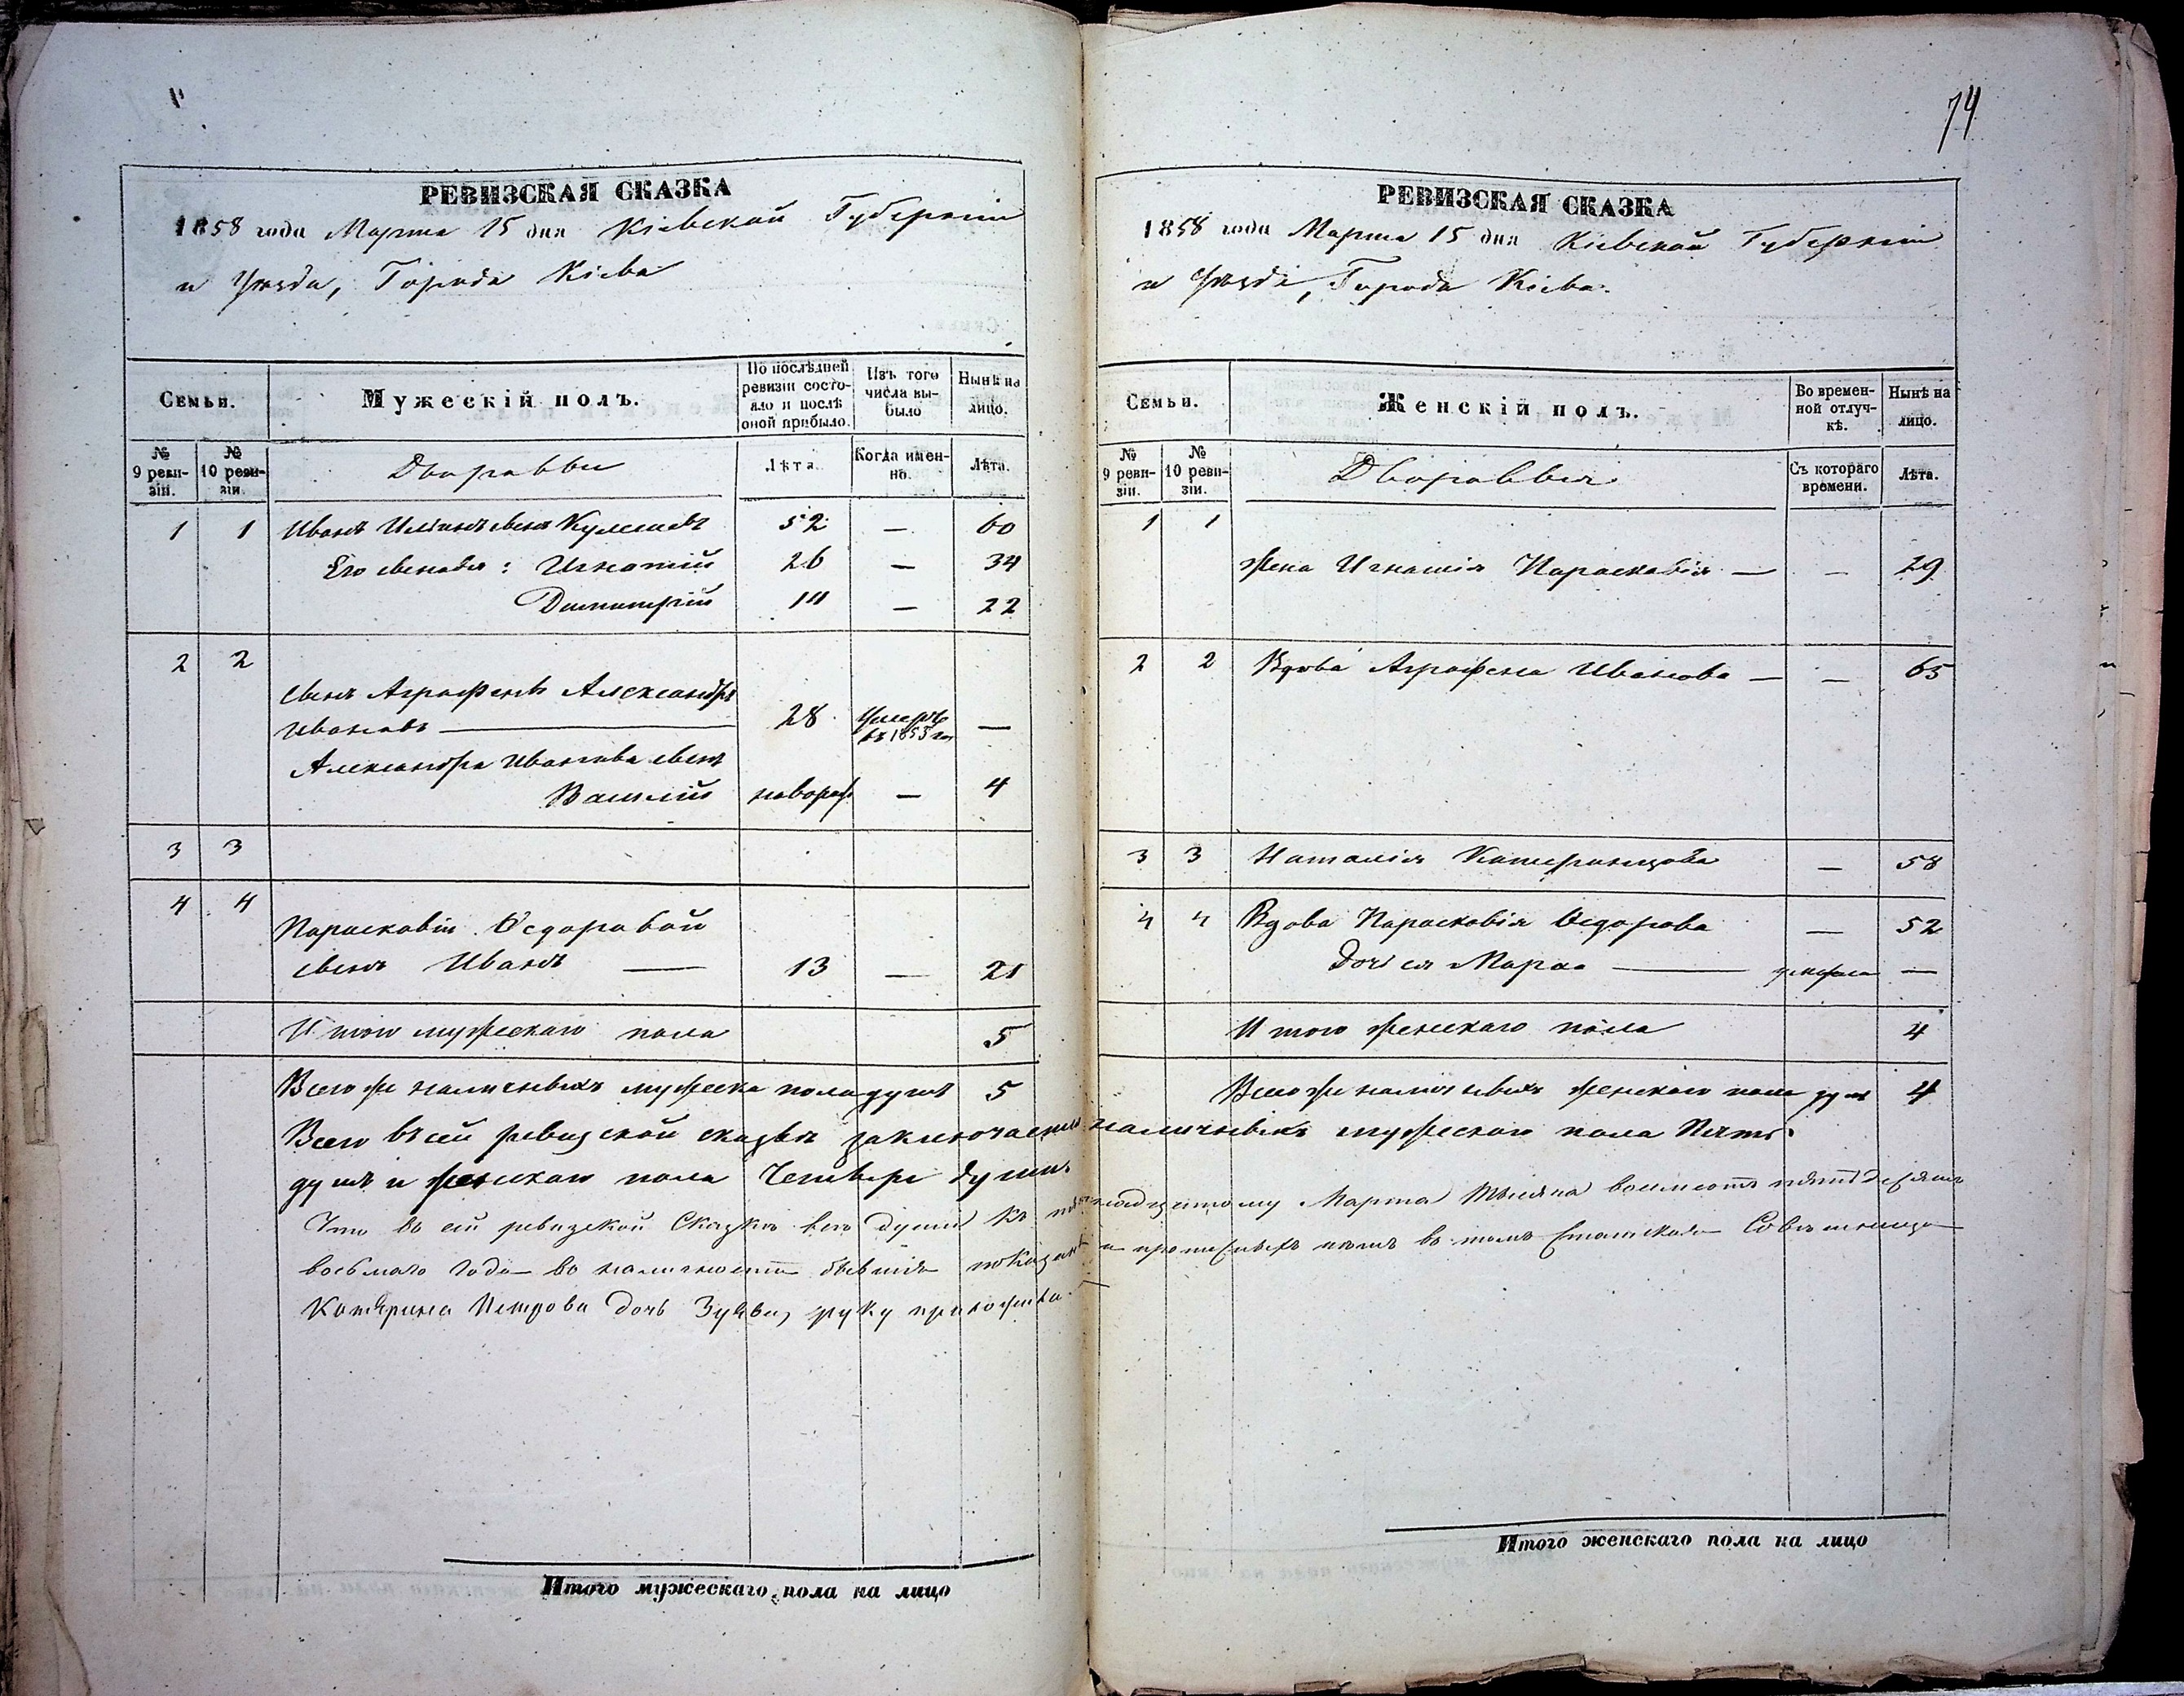 РЕВИЗСКАЯ СКАЗКА
1858 года Марта 15 дня Кіевской Губерніи
и Уѣзда, Города Кіева
Семьи.
Мужескій полъ.
По послѣдней ревизіи состояло и послѣ оной прибыло.
Изъ того числа выбыло
Нынѣ на лицо.
№ 9 ревизіи.
№ 10 ревизіи.
Дворовыи
Лѣта
Когда именно.
Лѣта.
1 1 Иванъ сынъ 52 — 60
Его сыновья: Игнатій 26 — 34
Димитрій 14 — 22
2 2
сынъ Аграфены Александръ
Ивановъ — 28 Умеръ въ 1853 —
Александра Иванова сынъ
Василій новорож — 4
3 3
4 4
Парасковіи Ѳедоровой
сынъ Иванъ — 13 — 21
Итого мужескаго пола 5
Всего же наличныхъ мужеска пола душъ 5
74
РЕВИЗСКАЯ СКАЗКА
1858 года Марта 15 дня Кіевской Губерніи
и Уѣзда, Города Кіева.
Семьи.
Женскій полъ.
Во временной отлучкѣ.
Нынѣ на лицо.
№ 9 ревизіи.
№ 10 ревизіи.
Дворовыя
Съ котораго времени.
Лѣта.
1 1
Жена Игнатія Параскавія — — 29
2 2 Вдова Аграфена Иванова — — 65
3 3 Наталія — 58
4 4 Вдова Парасковія Ѳедорова — 52
Дочь ея Марѳа — умерла —
Итого женскаго пола 4
Всего же наличныхъ женскаго пола душъ 4
Всего въ сей ревизской сказкѣ заключается наличныхъ мужескаго пола Пять
душъ и женскаго пола Четыре души.
Что въ сей ревизской Сказкѣ всѣ души къ пятнадцатому Марта Мѣсяца восемсотъ пятьдесятъ
восьмаго года въ наличности бывшія показаны и прописныхъ нѣтъ въ томъ Статская Совѣтница
Катерина Петрова дочь Зуева, руку приложила.
Итого мужескаго пола на лицо
Итого женскаго пола на лицо